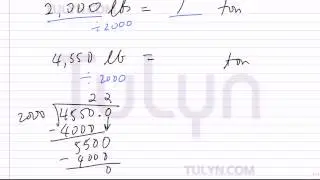 2,000 lbs = 1 ton
÷2000
4,550 lb = ton
÷ 2000
2 2
2000 4550.0
- 4000
5500
- 4000
0
TULYN
TULYN.COM